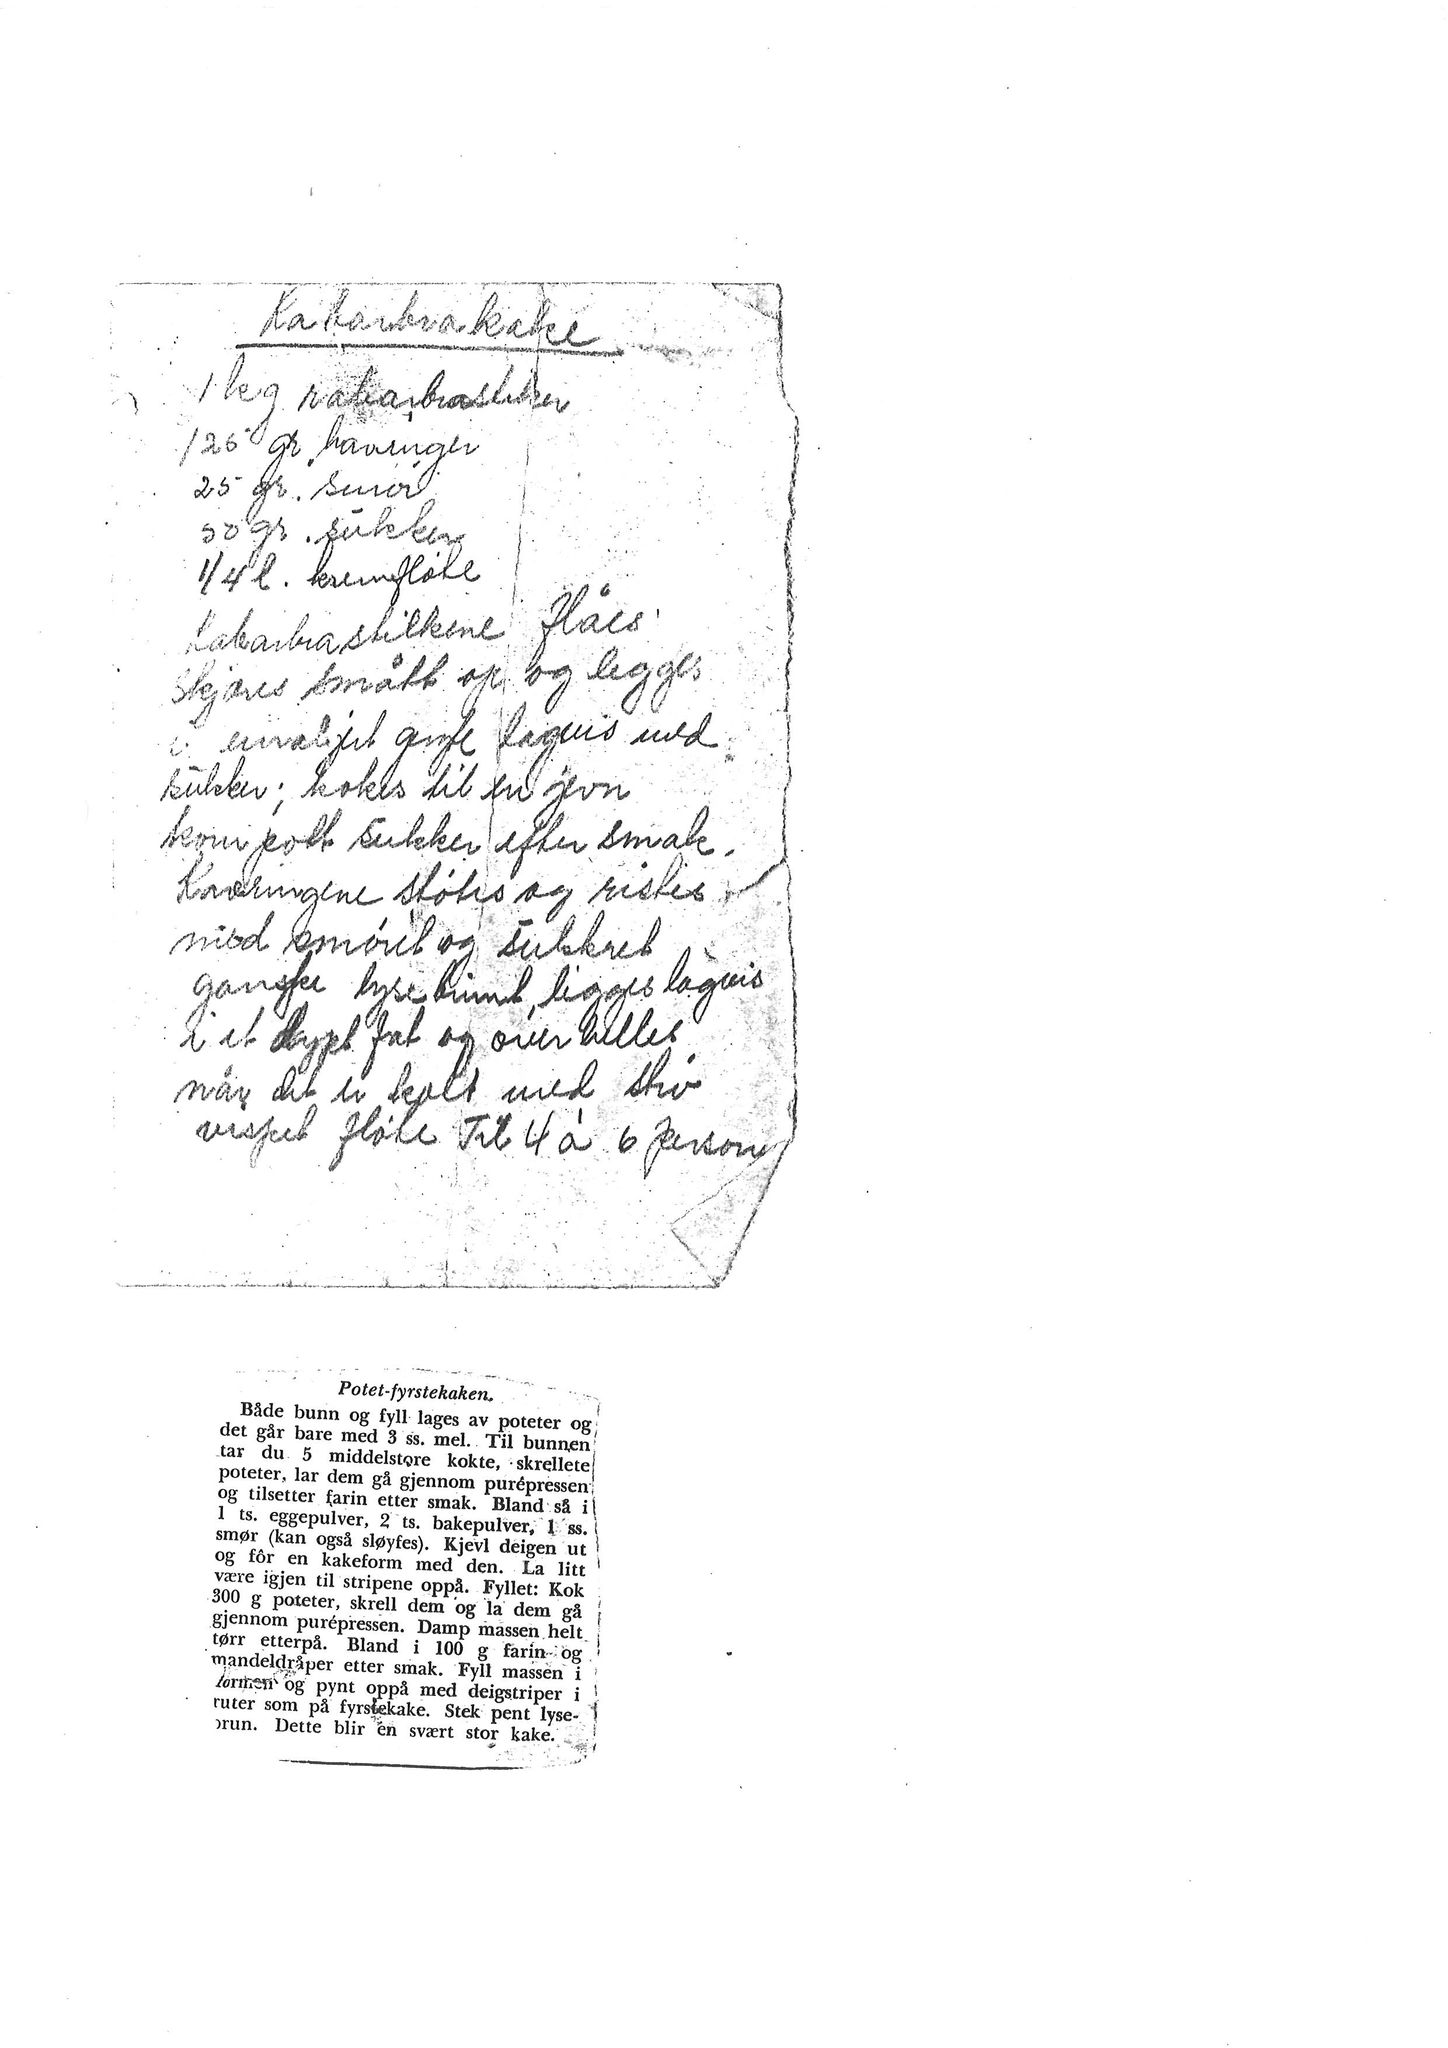 Rabarbrakake
1 kg rabarbrastilker
125 gr. kavringer
25 gr. smør
50 gr. sukker
1/4 l. kremfløte
Rabarbrastilkene flåes
skjæres smått op og legges
i emaljert gryte lagvis med
sukker; kokes til en jevn
kompott sukker efter smak.
Kavringene støtes og ristes
med smøret og sukkret
ganske lysebrunt, legges lagvis
i et dypt fat og overhelles
når det er koldt med stiv
vispet fløte Til 4 á 6 person
Potet-fyrstekaken.
Både bunn og fyll lages av poteter og
det går bare med 3 ss. mel. Til bunnen
tar du 5 middelstore kokte, skrellete
poteter, lar dem gå gjennom purépressen
og tilsetter farin etter smak. Bland så i
1 ts. eggepulver, 2 ts. bakepulver, 1 ss.
smør (kan også sløyfes). Kjevl deigen ut
og fôr en kakeform med den. La litt
være igjen til stripene oppå. Fyllet: Kok
300 g poteter, skrell dem og la dem gå
gjennom purépressen. Damp massen helt
tørr etterpå. Bland i 100 g farin og
mandeldråper etter smak. Fyll massen i
formen og pynt oppå med deigstriper i
ruter som på fyrstekake. Stek pent lyse-
brun. Dette blir en svært stor kake.